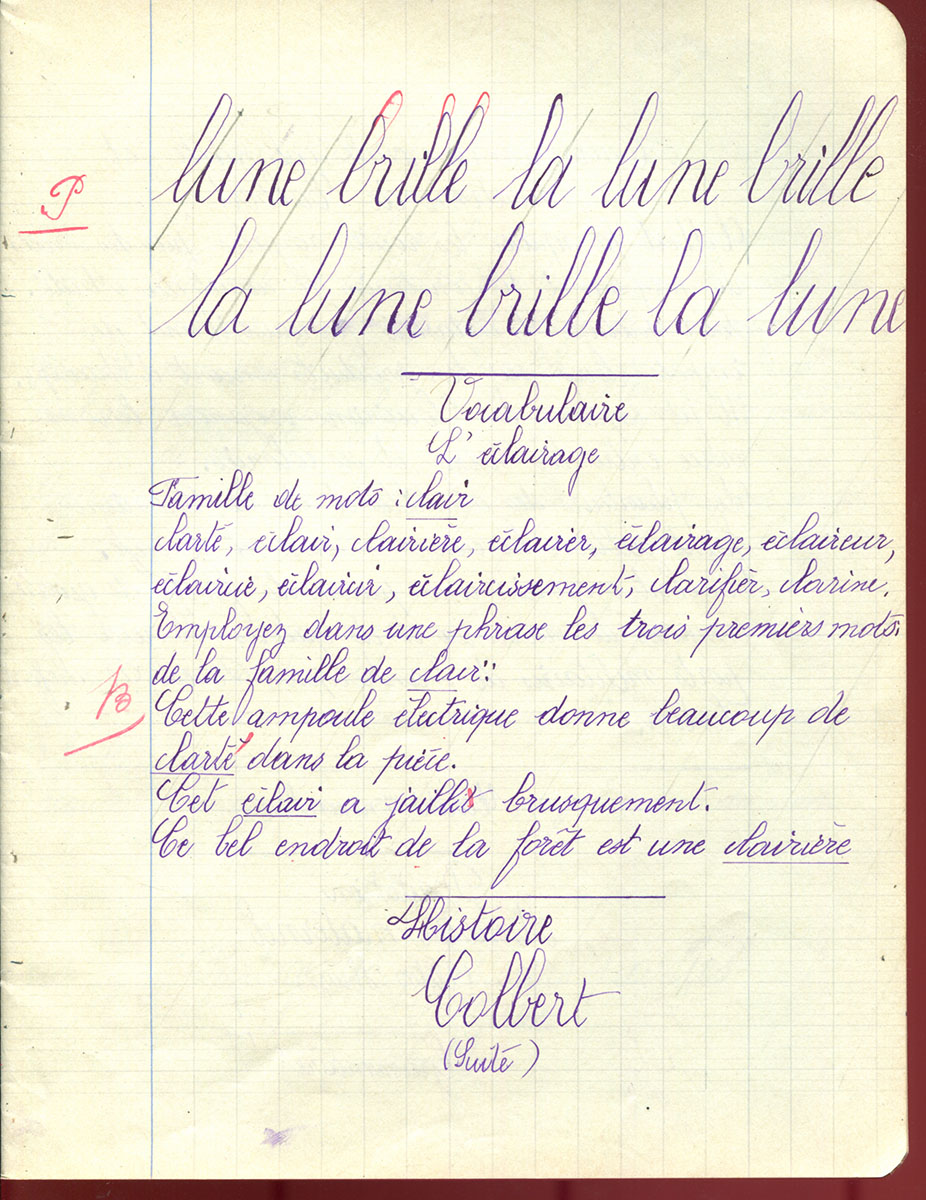 P
lune brille la lune brille
la lune brille la lune
Vocabulaire
L'éclairage
Famille de mots : clair
clarté, éclair, clairière, éclairer, éclairage, éclaireur,
éclaircie, éclaircir, éclaircissement, clarifier, clarine.
Employez dans une phrase les trois premiers mots
de la famille de clair :
B
Cette ampoule électrique donne beaucoup de
clarté dans la pièce.
Cet éclair a jailli brusquement.
Ce bel endroit de la forêt est une clairière
Histoire
Colbert
(Suite)